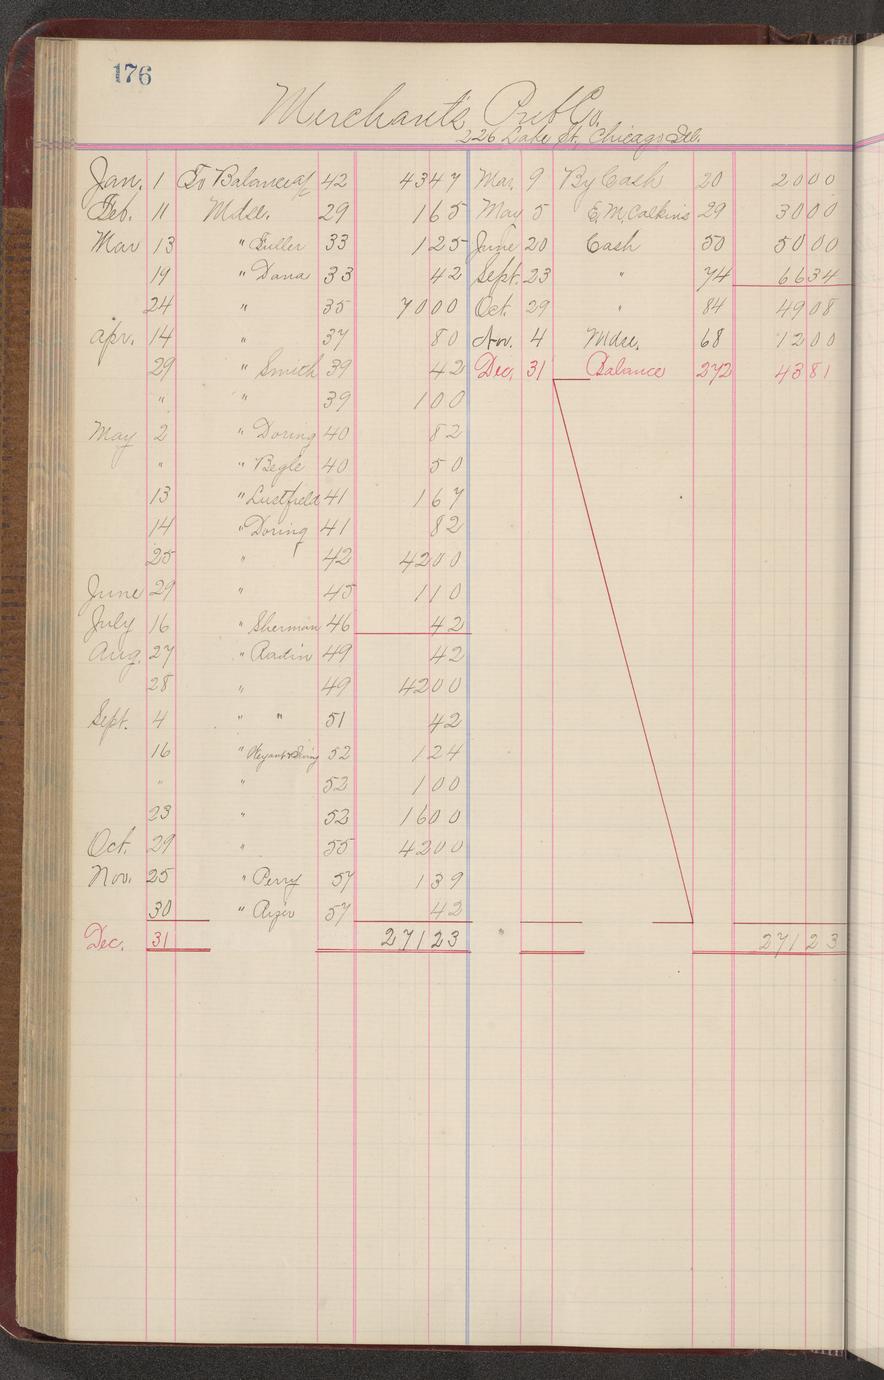 176
Merchant's Pub Co.
226 Lake St, Chicago Ill.
Jan. 1 To Balance a/c 42 4347 Mar. 9 By Cash 20 2000
Feb. 11 Mdse. 29 165 May 5 E.M. Calkins 29 3000
Mar 13 " Fuller 33 125 June 20 Cash 50 5000
19 " Dana 33 42 Sept. 23 " 74 6634
24 " 35 7000 Oct. 29 " 84 4908
Apr. 14 " 37 80 Nov. 4 Mdse. 68 1200
29 " Smith 39 42 Dec. 31 Balance 272 4381
" " 39 100
May 2 " Doring 40 82
" " Begle 40 50
13 " Lustfield 41 167
14 " Doring 41 82
25 " 42 4200
June 29 " 45 110
July 16 " Sherman 46 42
Aug. 27 " Radin 49 42
28 " 49 4200
Sept. 4 " " 51 42
16 " 52 124
" " 52 100
23 " 52 1600
Oct. 29 " 55 4200
Nov. 25 " Perry 57 139
30 " 57 42
Dec. 31 27123 " 27123